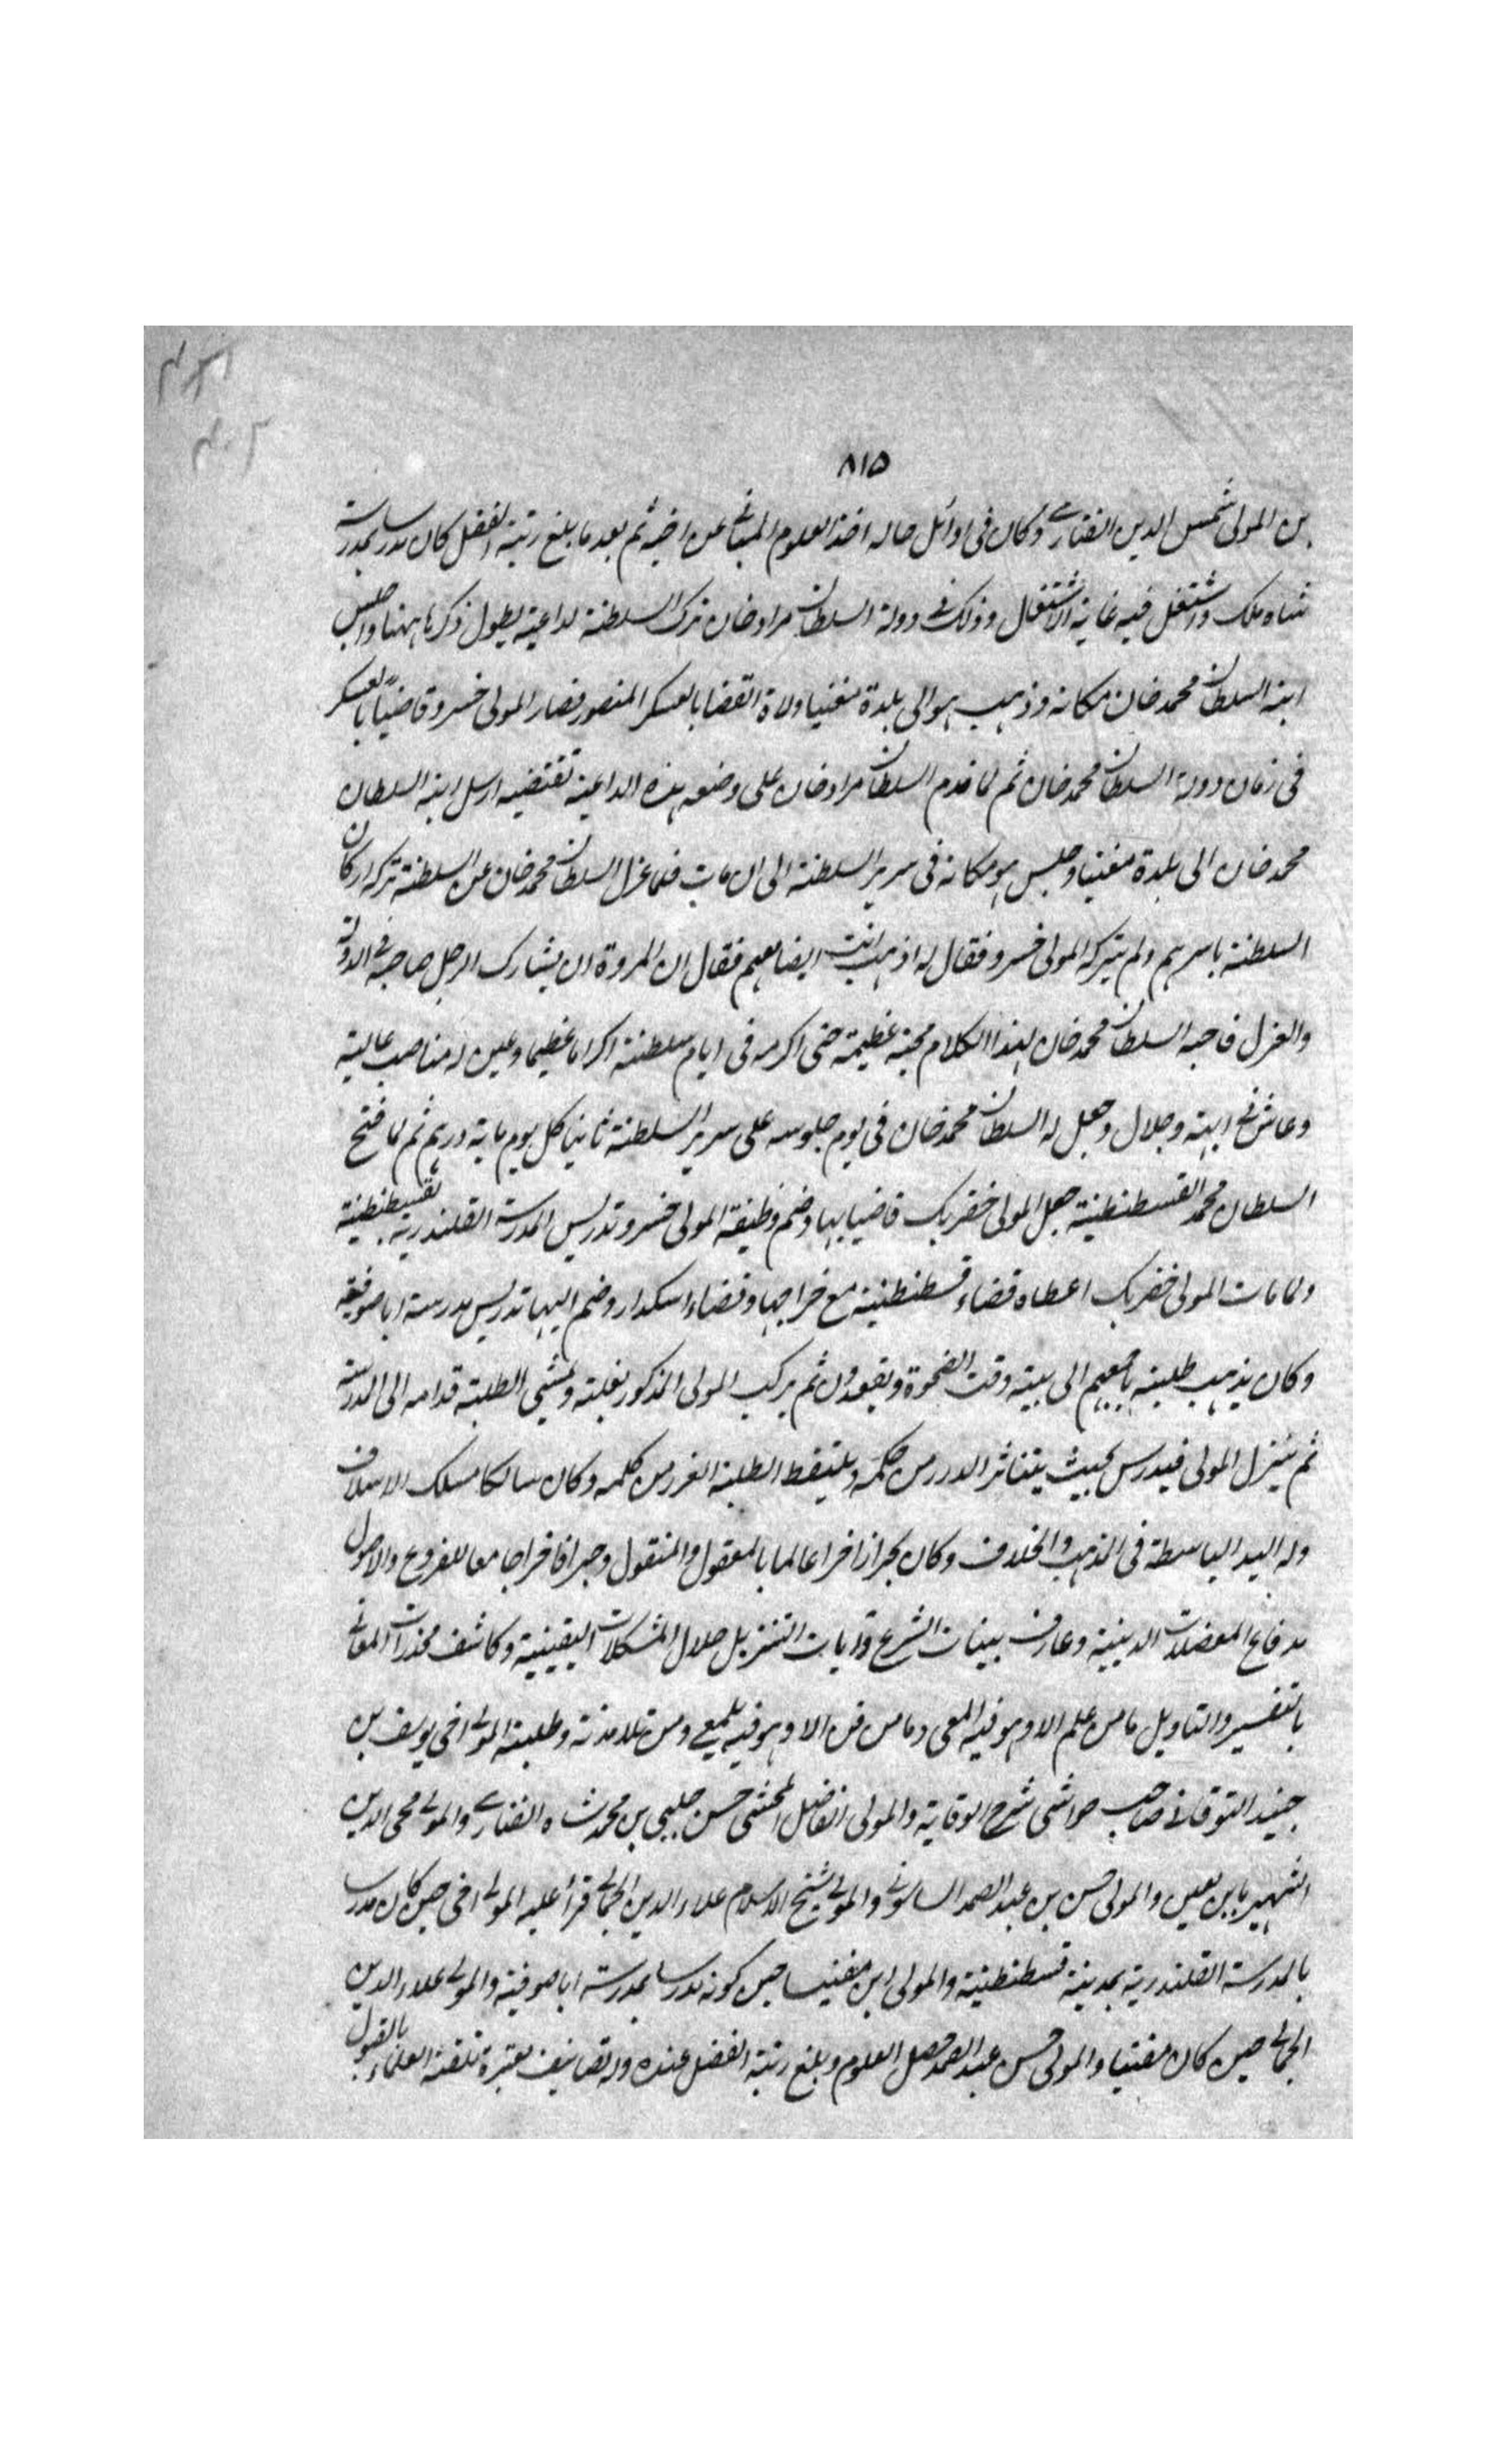 ٨١٥
بن المولى شمس الدين الفناري وكان في اوائل حاله اخذ العلوم المباني عن اخيه ثم بعد ما بلغ رتبة الفضل كان مدرسا بمدرسة
شاه ملك واشتغل فيه غاية الاشتغال وذلك في دولة السلطان مرادخان ترك السلطنة لداعية يطول ذكرها ههنا واجلس
ابنه السلطان محمدخان مكانه وذهب هو الى بلدة مغنيسا ولاة القضا بالعسكر المنصور فصار المولى خسرو قاضيا بالعسكر
في زمان دولة السلطان محمدخان ثم لما قدم السلطان مرادخان على وضعه هذه الداعية تقتضيه ارسل ابنه السلطان
محمدخان الى بلدة مغنيسا وجلس هو مكانه في سرير السلطنة الى ان مات فلما عزل السلطان محمدخان عن السلطنة تركه اركان
السلطنة باسرهم ولم يتركه المولى خسرو فقال له اذهب انت ايضا معهم فقال ان المروة ان يشارك الرجل صاحبه في الدولة
والعزل فاحبه السلطان محمدخان لهذا الكلام محبة عظيمة حتى اكرمه في ايام سلطنته اكراما عظيما وعين له مناصب عالية
وعاش في ابهة وجلال وجعل له السلطان محمدخان في يوم جلوسه على سرير السلطنة ثانيا كل يوم ماية درهم ثم لما فتح
السلطان محمد القسطنطنية جعل المولى خضربك قاضيا بها وضم وظيفة المولى خسرو تدريس المدرسة القلندرية بقسطنطنية
ولما مات المولى خضربك اعطاه قضاء قسطنطنية مع خراجها وقضاء اسكدار وضم اليها تدريس مدرسة اياصوفية
وكان يذهب طلبته باجمعهم الى بيته وقت الضحوة ويقعدون ثم يركب المولى المذكور بغلته ويمشي الطلبة قدامه الى المدرسة
ثم ينزل المولى فيدرس بحيث يتناثر الدرر من حكمه ويلتقط الطلبة الغرر من كلمه وكان سالكا مسلك الاسلاف
وله اليد الباسطة في المذهب والخلاف وكان بحرا زاخرا عالما بالمعقول والمنقول وحبرا فاخرا جامعا للفروع والاصول
دفاع المعضلات الدينية وعارف بينات الشرع وايات التنزيل حلال المشكلات اليقينية وكاشف مخدرات المعاني
بالتفسير والتاويل ما من علم الا وهو فيه المعي وما من فن الا وهو فيه يلمعي ومن تلامذته وطلبته المولى اخي يوسف بن
جنيد التوقاتي صاحب حواشي شرح الوقاية والمولى الفاضل المحشي حسن جلبي بن محمدشاه الفناري والمولى محي الدين
الشهير بابن مغنيسا والمولى حسن بن عبد الصمد السامسوني والمولى شيخ الاسلام علاء الدين الجمالي قرأ عليه المولى اخي حين كان مدرسا
بالمدرسة القلندرية بمدينة قسطنطنية والمولى ابن مغنيسا حين كونه مدرسا بمدرسة اياصوفية والمولى علاء الدين
الجمالي حين كان مفتيا والمولى حسن عبد الصمد حصل العلوم وبلغ رتبة الفضل عنده وله تصانيف معتبرة تلقته العلماء بالقبول